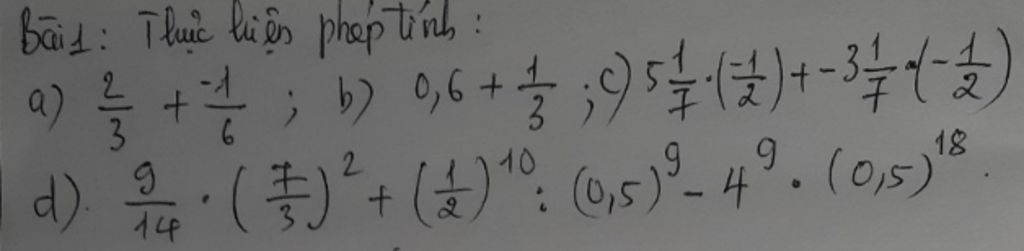 Bài 1: Thực hiện phép tính:
a) 2/3 + -1/6 ; b) 0,6 + 1/3 ; c) 5 1/7 . (-1/2) + -3 1/7 . (-1/2)
d). 9/14 . (7/3)² + (1/2)¹⁰ : (0,5)⁹ - 4⁹ . (0,5)¹⁸.